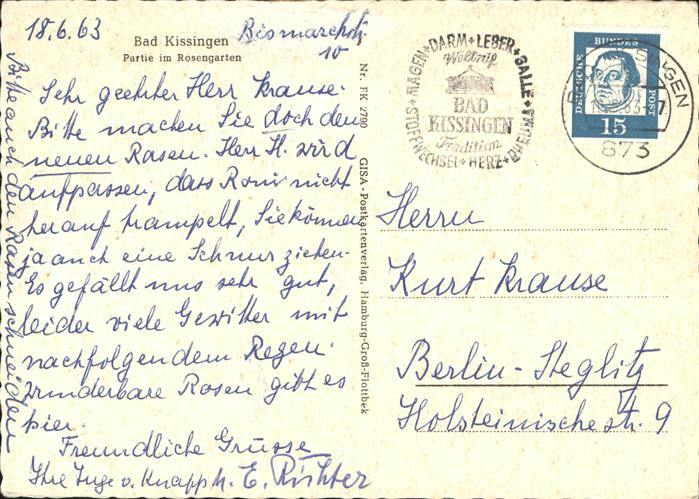 18.6.63 Bismarckstr. 10
Bad Kissingen
Partie im Rosengarten
Sehr geehrter Herr Krause.
Bitte machen Sie doch den
neuen Rasen. Herr H. wird
aufpassen, dass Romi nicht
herauf trampelt, Sie können
ja auch eine Schnur ziehen.
Es gefällt uns sehr gut,
leider viele Gewitter mit
nachfolgendem Regen.
Wunderbare Rosen gibt es
hier.
Freundliche Grüsse
Ihre Inge v. Knapp u. E. Richter
Bitte auch den Rasen schneiden
Nr. FK 2780 GISA-Postkartenverlag, Hamburg-Groß-Flottbek
MAGEN+DARM+LEBER+GALLE+RHEUMA+HERZ+STOFFWECHSEL+
Weltruf
BAD
KISSINGEN
Tradition
DEUTSCHE BUNDES POST
15
BAD KISSINGEN
873
Herrn
Kurt Krause
Berlin-Steglitz
Holsteinische str. 9